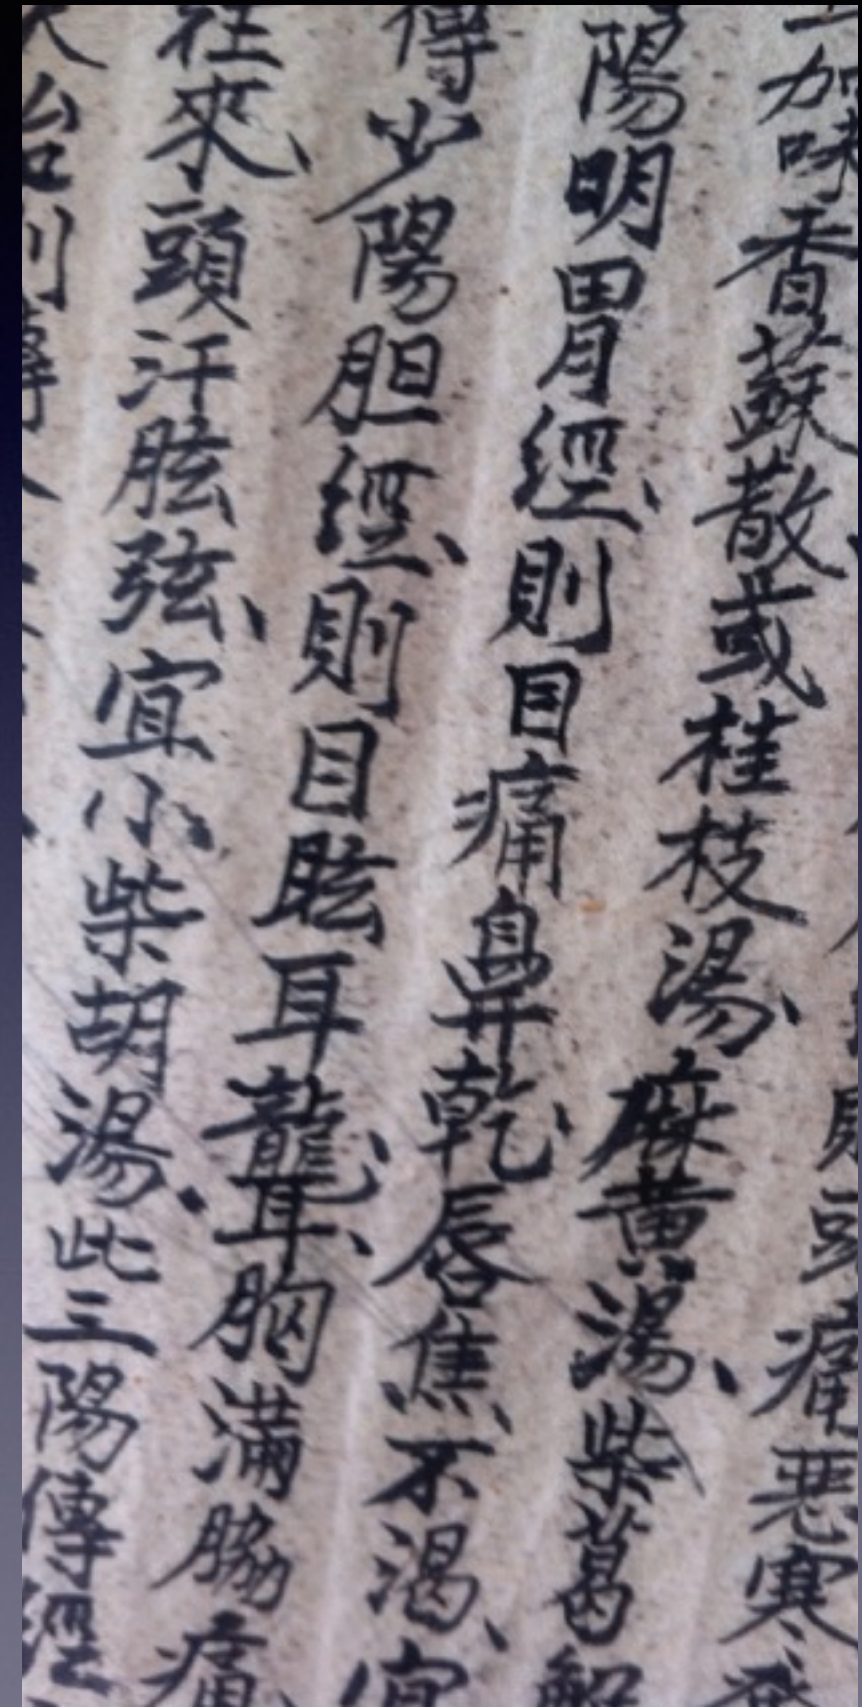 則頭痛惡寒
加味香蘇散或桂枝湯、麻黃湯、柴葛解
陽明胃經、則目痛鼻乾、唇焦、不渴、宜
傳少陽胆經、則目眩耳龍、耳、胸滿脇痛
往來、頭汗胘弦、宜小柴胡湯、此三陽傳經
治則